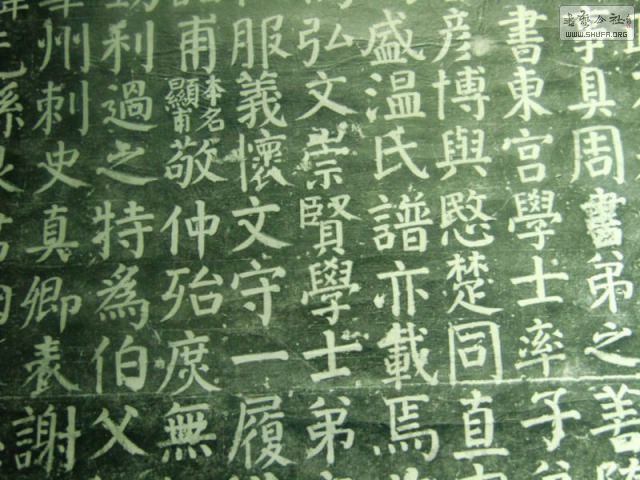 具周書弟之善
書東宮學士率子
彥博與愍楚同直
盛溫氏譜亦載焉
弘文崇賢學士弟
服義懷文守一履
甫本名顯甫敬仲殆庶無
利過之特為伯父
州刺史真卿表謝
WWW.SHUFA.ORG